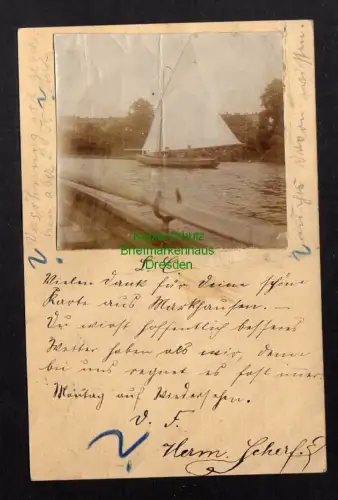 Kevin Schutz
Briefmarkenhaus
Dresden
L. C.
Vielen Dank für Deine schöne
Karte aus Markhausen. —
Du wirst hoffentlich besseres
Wetter haben als wir, denn
bei uns regnet es fast immer.
Montag auf Wiedersehen.
D. F.
Herm. Scherf.